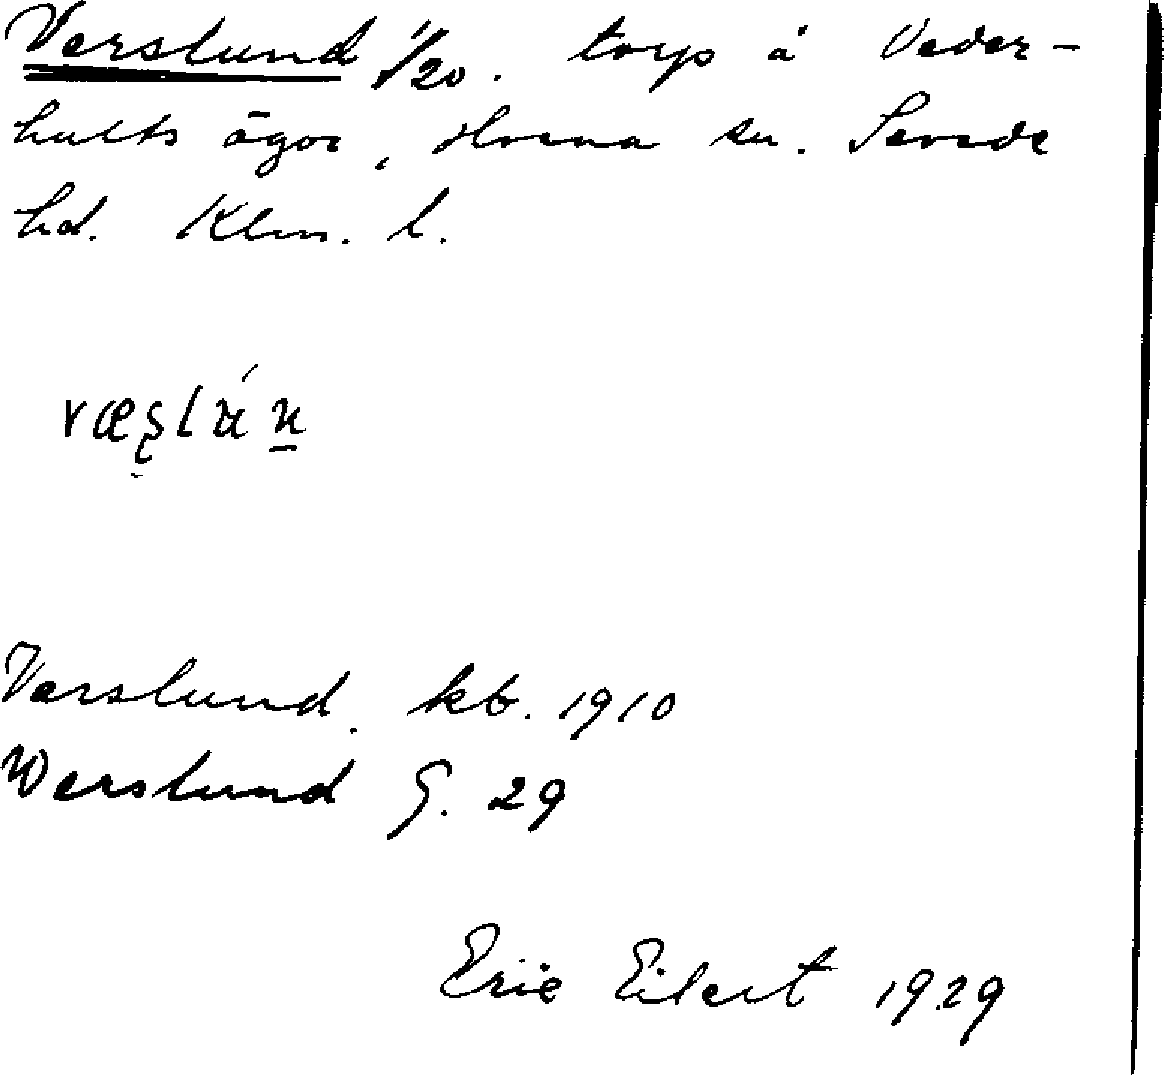 Verslund 1/20. torp å Veder-
hults ägor, Hvena sn. Sevede
hd. Klm. l.
Verslund. kb. 1910
Werslund G. 29
Eric Eilert 1929